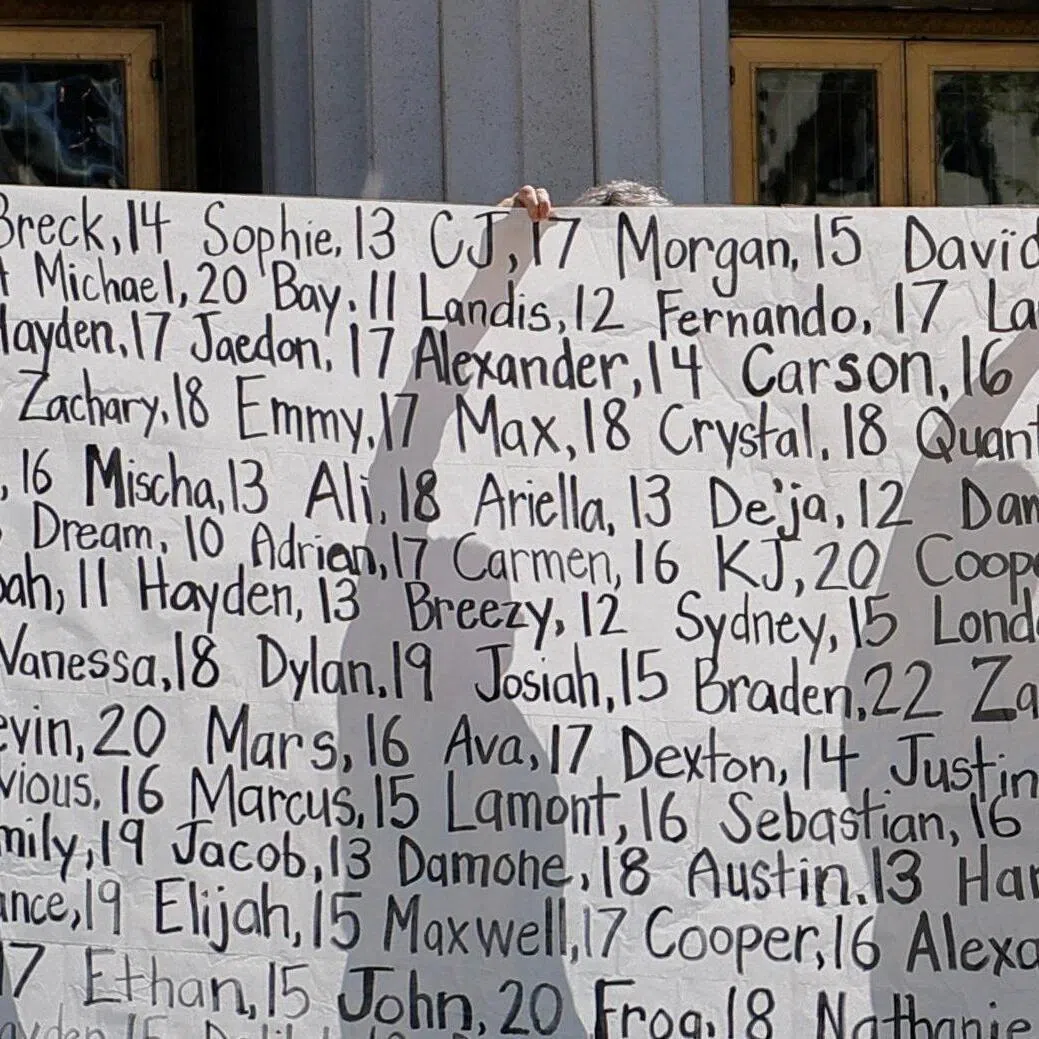 Breck,14 Sophie,13 CJ,17 Morgan,15 David
Michael,20 Bay,11 Landis,12 Fernando,17 La
Hayden,17 Jaedon,17 Alexander,14 Carson,16
Zachary,18 Emmy,17 Max,18 Crystal,18 Quant
,16 Mischa,13 Ali,18 Ariella,13 De'ja,12 Dam
Dream,10 Adrian,17 Carmen,16 KJ,20 Coope
ah,11 Hayden,13 Breezy,12 Sydney,15 Lond
Vanessa,18 Dylan,19 Josiah,15 Braden,22 Za
evin,20 Mars,16 Ava,17 Dexton,14 Justin
vious,16 Marcus,15 Lamont,16 Sebastian,16
mily,19 Jacob,13 Damone,18 Austin.13 Har
ance,19 Elijah,15 Maxwell,17 Cooper,16 Alexa
17 Ethan,15 John,20 Frog,18 Nathanie
ayden